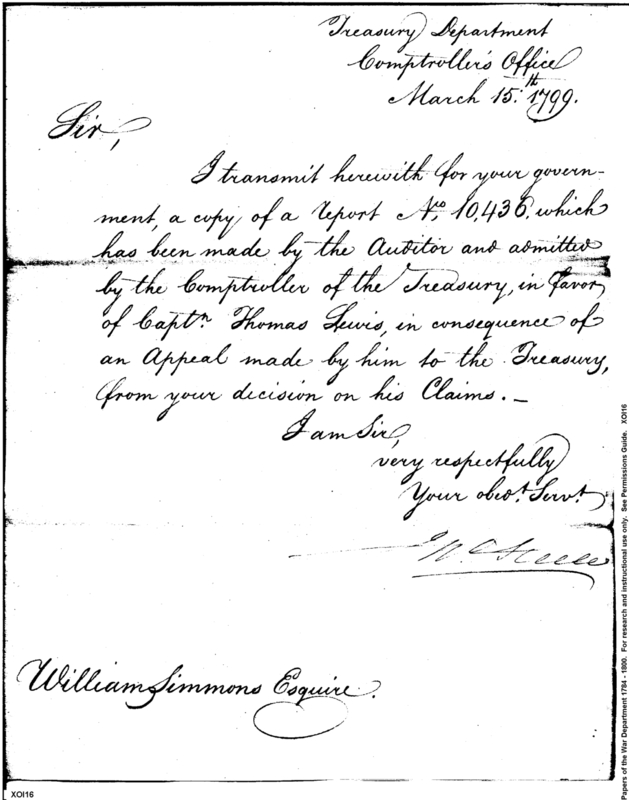 Treasury Department
Comptroller's Office
March 15.th 1799.
Sir,
I transmit herewith for your govern-
ment, a copy of a report No. 10,436. which
has been made by the Auditor and admitted
by the Comptroller of the Treasury, in favor
of Captn. Thomas Lewis, in consequence of
an Appeal made by him to the Treasury,
from your decision on his Claims. _
I am Sir,
very respectfully
Your obedt. Servt.
Jno. Steele
William Simmons Esquire.
XOI16
Papers of the War Department 1784 - 1800. For research and instructional use only. See Permissions Guide. XOI16